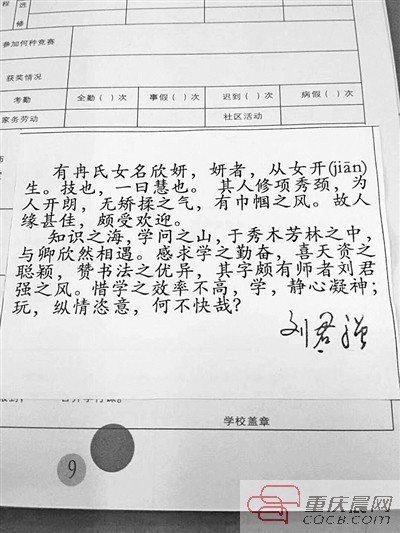 程 选
修
参加何种竞赛
获奖情况
考勤 全勤( )次 事假( )次 迟到( )次 病假( )次
家务劳动 社区活动
有冉氏女名欣妍,妍者,从女开(jiān)
生。技也,一曰慧也。 其人修项秀颈,为
人开朗,无矫揉之气,有巾帼之风。故人
缘甚佳,颇受欢迎。
知识之海,学问之山,于秀木芳林之中,
与卿欣然相遇。感求学之勤奋,喜天资之
聪颖,赞书法之优异,其字颇有师者刘君
强之风。惜学之效率不高,学,静心凝神;
玩,纵情恣意,何不快哉?
刘君强
学校盖章
9
重庆晨网
CQCB.COM